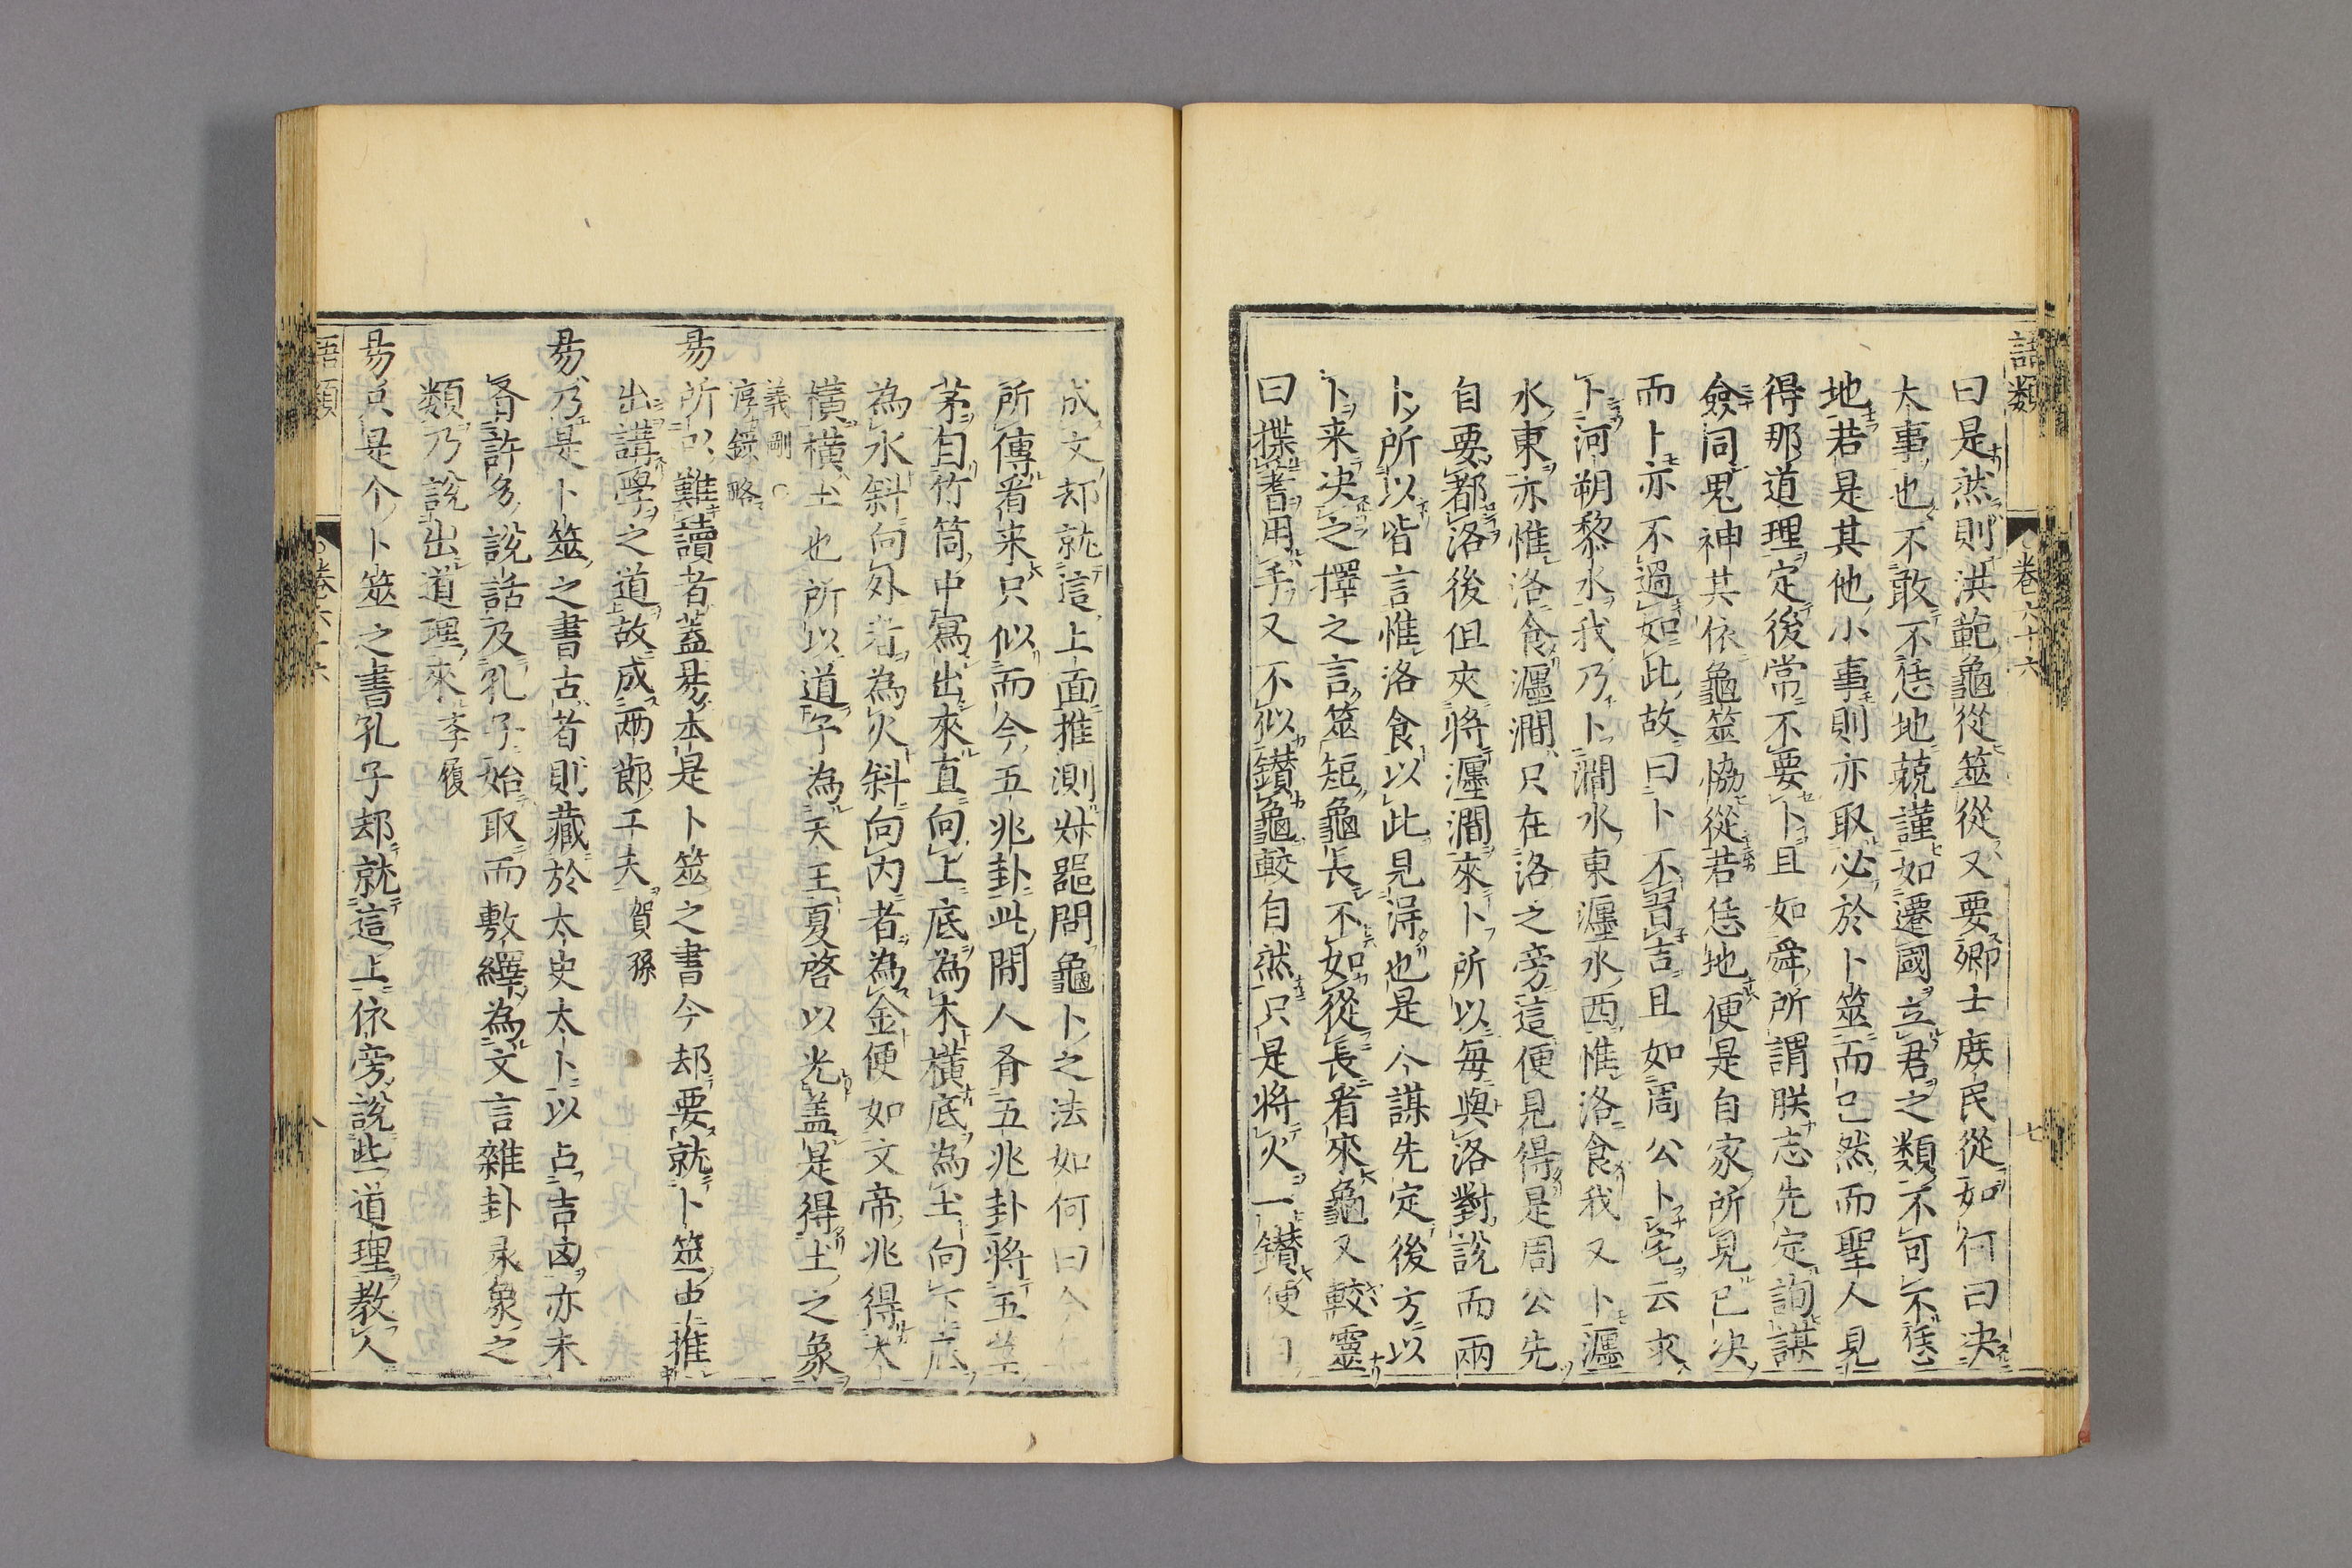 語類
卷六十六
七
曰是然則洪範龜從筮從又要卿士庶民從如何曰决
大事也不敢不恁地兢謹如遷國立君之類不可不恁
地若是其他小事則亦取必於卜筮而已然而聖人見
得那道理定後常不要卜且如舜所謂朕志先定詢謀
僉同鬼神其依龜筮恊從若恁地便是自家所見已决
而卜亦不過如此故曰卜不習吉且如周公卜宅云求
卜河朔黎水我乃卜澗水東瀍水西惟洛食我又卜瀍
水東亦惟洛食瀍澗只在洛之旁這便見得是周公先
自要都洛後但夾將瀍澗來卜所以每與洛對說而兩
卜所以皆言惟洛食以此見得也是人謀先定後方以
卜来决之擇之言筮短龜長不如從長看來龜又較靈
曰揲蓍用手又不似鑚龜較自然只是將火一鑚便
成文却就這上面推測㛮器問龜卜之法如何曰今
所傳看来只似而今五兆卦此間人有五兆卦將五莖
茅自竹筒中寫出來直向上底為木橫底為土向下底
為水斜向外者為火斜向内者為金便如文帝兆得大
橫橫土也所以道予為天王夏啓以光盖是得土之象
義剛○
淳錄略
易所以難讀者蓋易本是卜筮之書今却要就卜筮中推
出講學之道故成兩節工夫賀孫
易乃是卜筮之書古者則藏於太史太卜以占吉凶亦未
有許多說話及孔子始取而敷繹為文言雜卦彖象之
類乃說出道理來學履
易只是个卜筮之書孔子却就這上依旁說些道理教人
語類
卷六十六
八